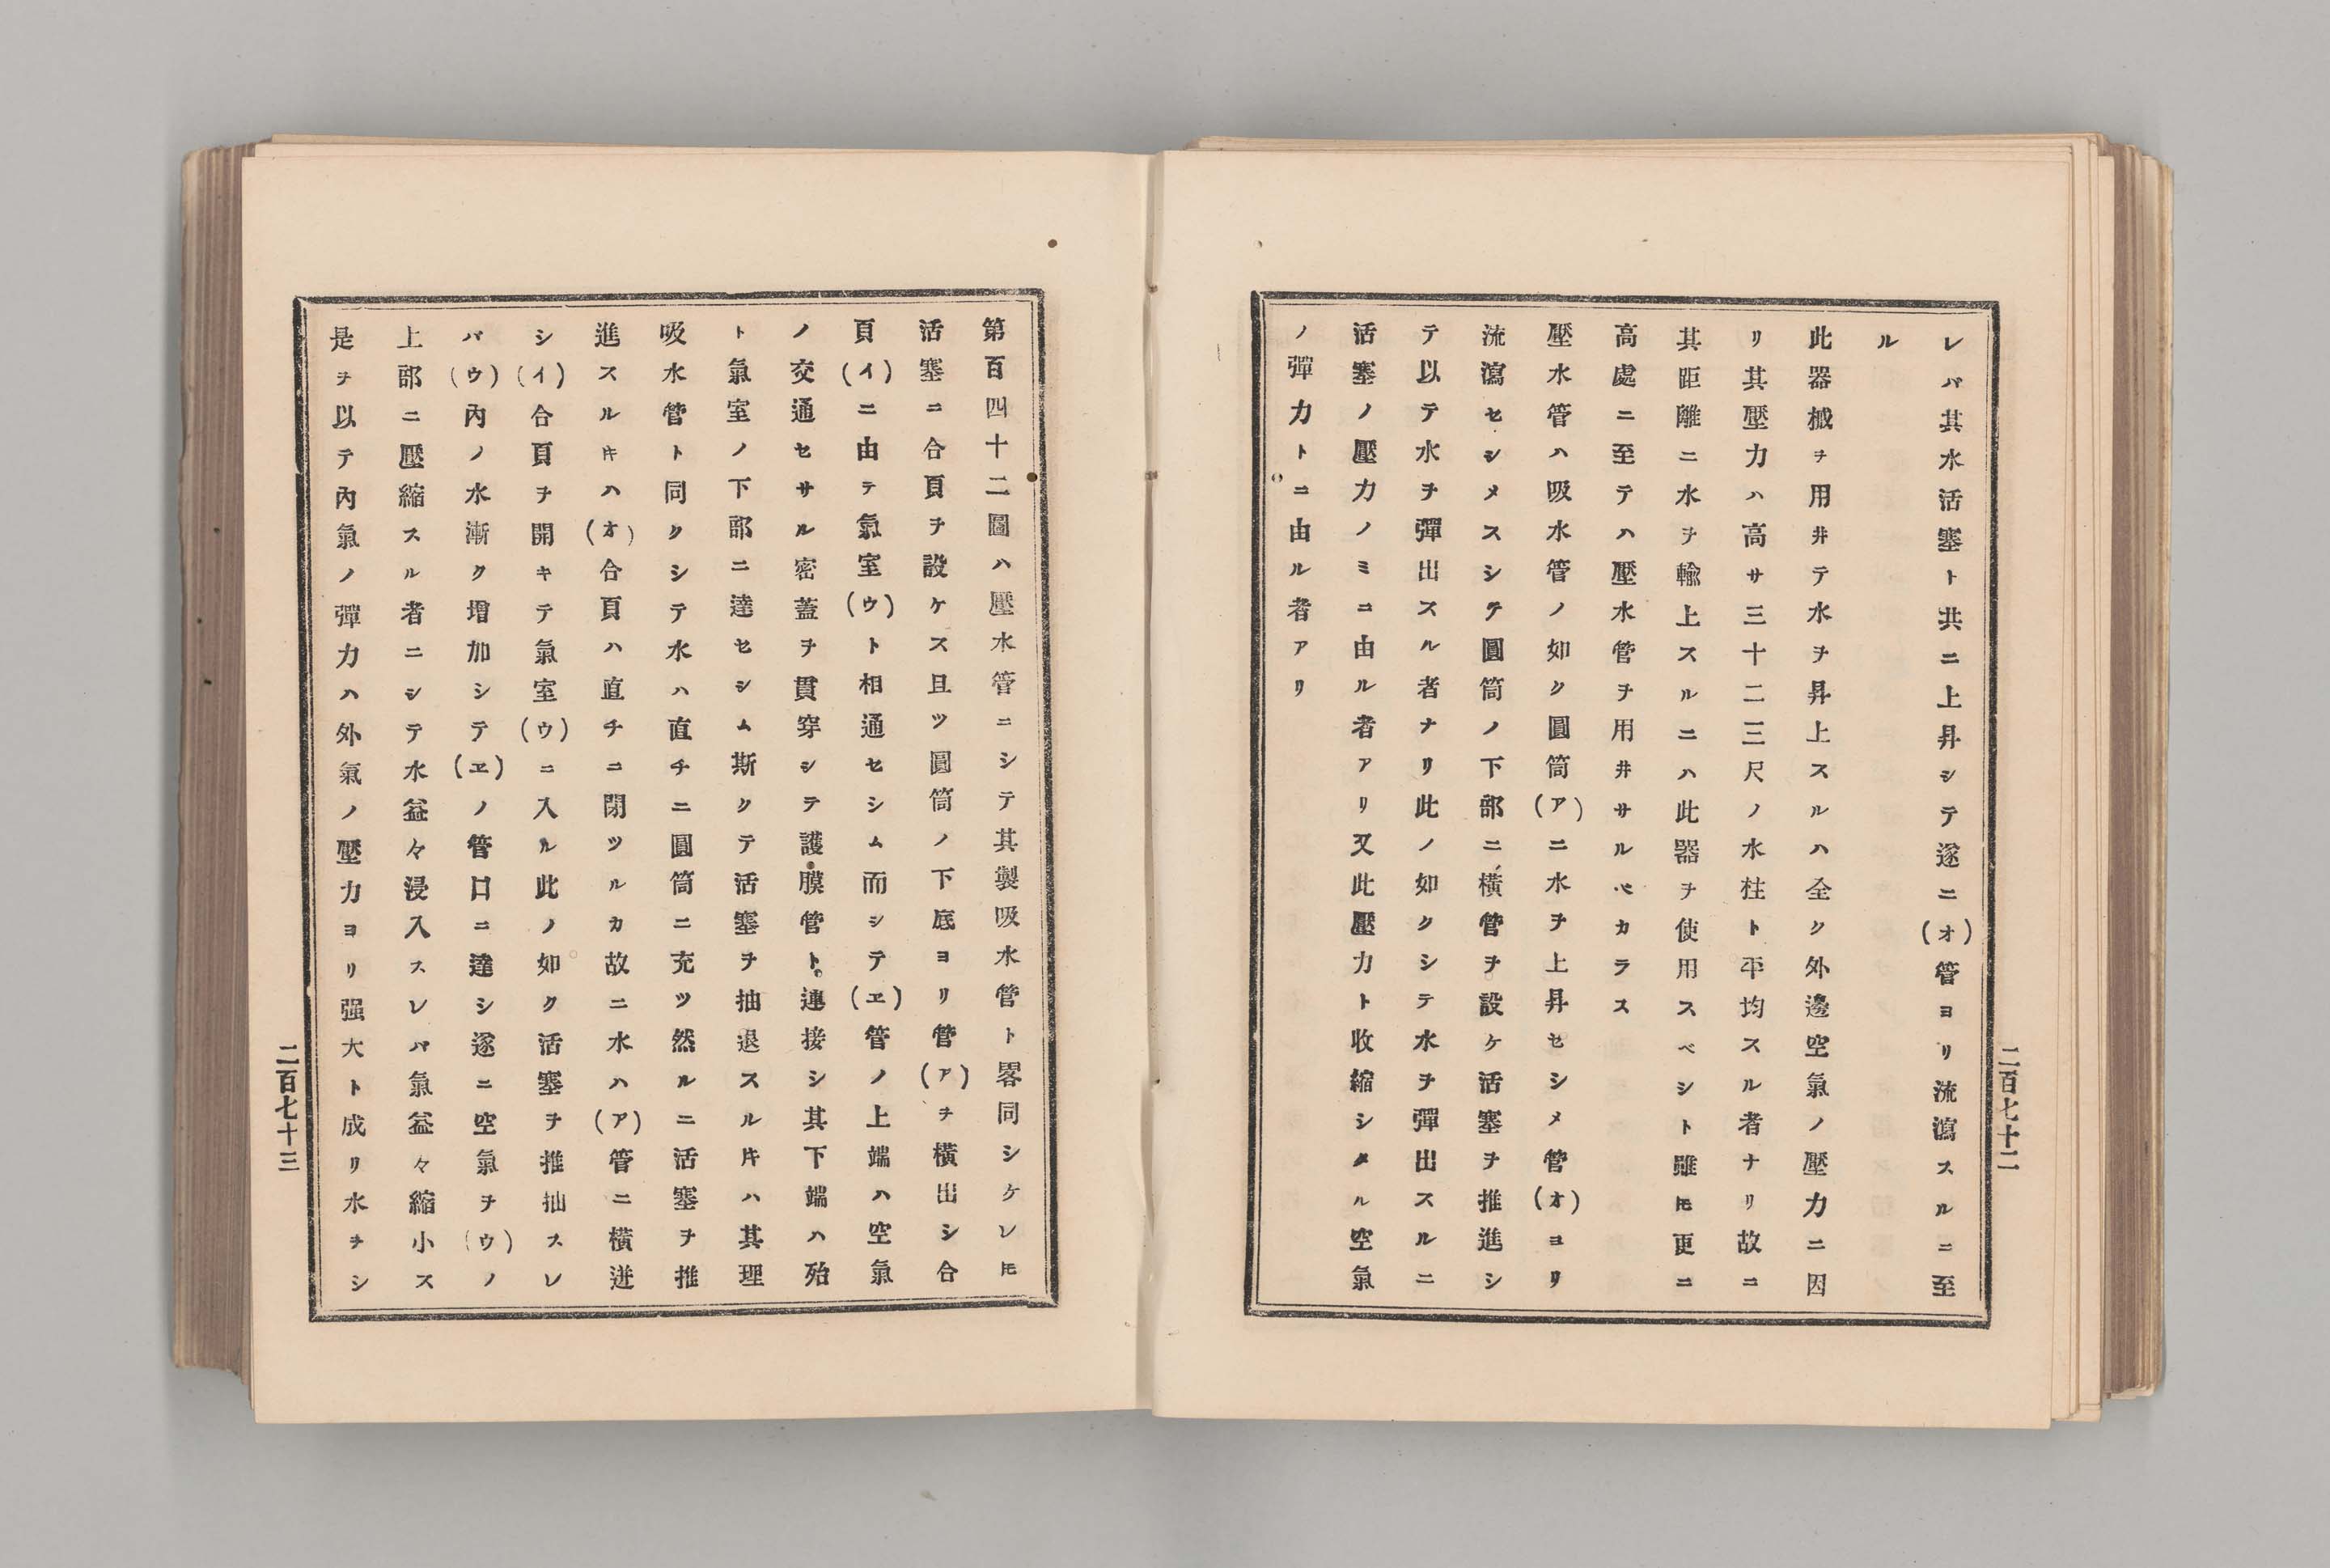 レバ其水活塞ト共ニ上昇シテ遂ニ(オ)管ヨリ流瀉スルニ至
ル
此器械ヲ用井テ水ヲ昇上スルハ全ク外邊空氣ノ壓力ニ因
リ其壓力ハ高サ三十二三尺ノ水柱ト平均スル者ナリ故ニ
其距離ニ水ヲ輸上スルニハ此器ヲ使用スベシト雖𪜈更ニ
高處ニ至テハ壓水管ヲ用井サルベカラス
壓水管ハ吸水管ノ如ク圓筒(ア)ニ水ヲ上昇セシメ管(オ)ヨリ
流瀉セシメスシテ圓筒ノ下部ニ橫管ヲ設ケ活塞ヲ推進シ
テ以テ水ヲ彈出スル者ナリ此ノ如クシテ水ヲ彈出スルニ
活塞ノ壓力ノミニ由ル者アリ又此壓力ト收縮シタル空氣
ノ彈力トニ由ル者アリ
二百七十二
第百四十二圖ハ壓水管ニシテ其製吸水管ト畧同シケレ𪜈
活塞ニ合頁ヲ設ケス且ツ圓筒ノ下底ヨリ管(ア)ヲ橫出シ合
頁(イ)ニ由テ氣室(ウ)ト相通セシム而シテ(ヱ)管ノ上端ハ空氣
ノ交通セサル密蓋ヲ貫穿シテ護膜管ト連接シ其下端ハ殆
ト氣室ノ下部ニ達セシム斯クテ活塞ヲ抽退スル𪜈ハ其理
吸水管ト同クシテ水ハ直チニ圓筒ニ充ツ然ルニ活塞ヲ推
進スルキハ(オ)合頁ハ直チニ閉ツルカ故ニ水ハ(ア)管ニ橫迸
シ(イ)合頁ヲ開キテ氣室(ウ)ニ入ル此ノ如ク活塞ヲ推抽スレ
バ(ウ)內ノ水漸ク增加シテ(ヱ)ノ管口ニ達シ遂ニ空氣ヲ(ウ)ノ
上部ニ壓縮スル者ニシテ水益々浸入スレバ氣益々縮小ス
是ヲ以テ內氣ノ彈力ハ外氣ノ壓力ヨリ强大ト成リ水ヲシ
二百七十三